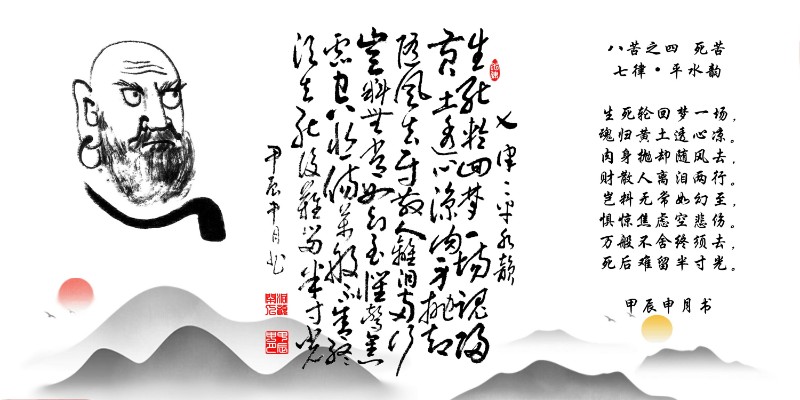 八苦之四 死苦
七律·平水韵
生死轮回梦一场，
魂归黄土透心凉。
肉身抛却随风去，
财散人离泪两行。
岂料无常如幻至，
惧惊焦虑空悲伤。
万般不舍终须去，
死后难留半寸光。
甲辰申月书
七律·平水韵
生死轮回梦一场魂归
黄土透心凉肉身抛却
随风去财散人离泪两行
岂料无常如幻至惧惊焦
虑空悲伤万般不舍终
须去死后难留半寸光
甲辰申月书